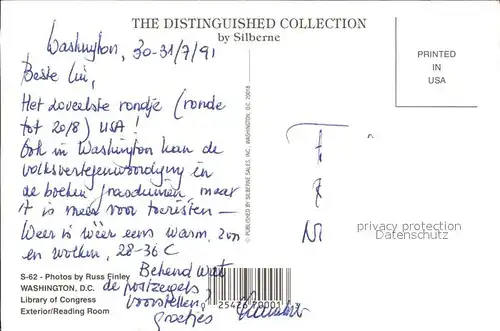 THE DISTINGUISHED COLLECTION
by Silberne
PRINTED
IN
USA
Washington, 30-31/7/91
Beste
Het zoveelste rondje (ronde
tot 20/8) USA!
Ook in Washington kan de
volksvertegenwoordiging in
de boeken grasduinen, maar
it is meer voor toeristen —
Weer is weer eens warm, zon
en wolken, 28-36 C
Bekend wat
de postzegels
voorstellen?
Groetjes
© PUBLISHED BY SILBERNE SALES, INC., WASHINGTON, D.C. 20018
privacy protection
Datenschutz
S-62 - Photos by Russ Finley
WASHINGTON, D.C.
Library of Congress
Exterior/Reading Room